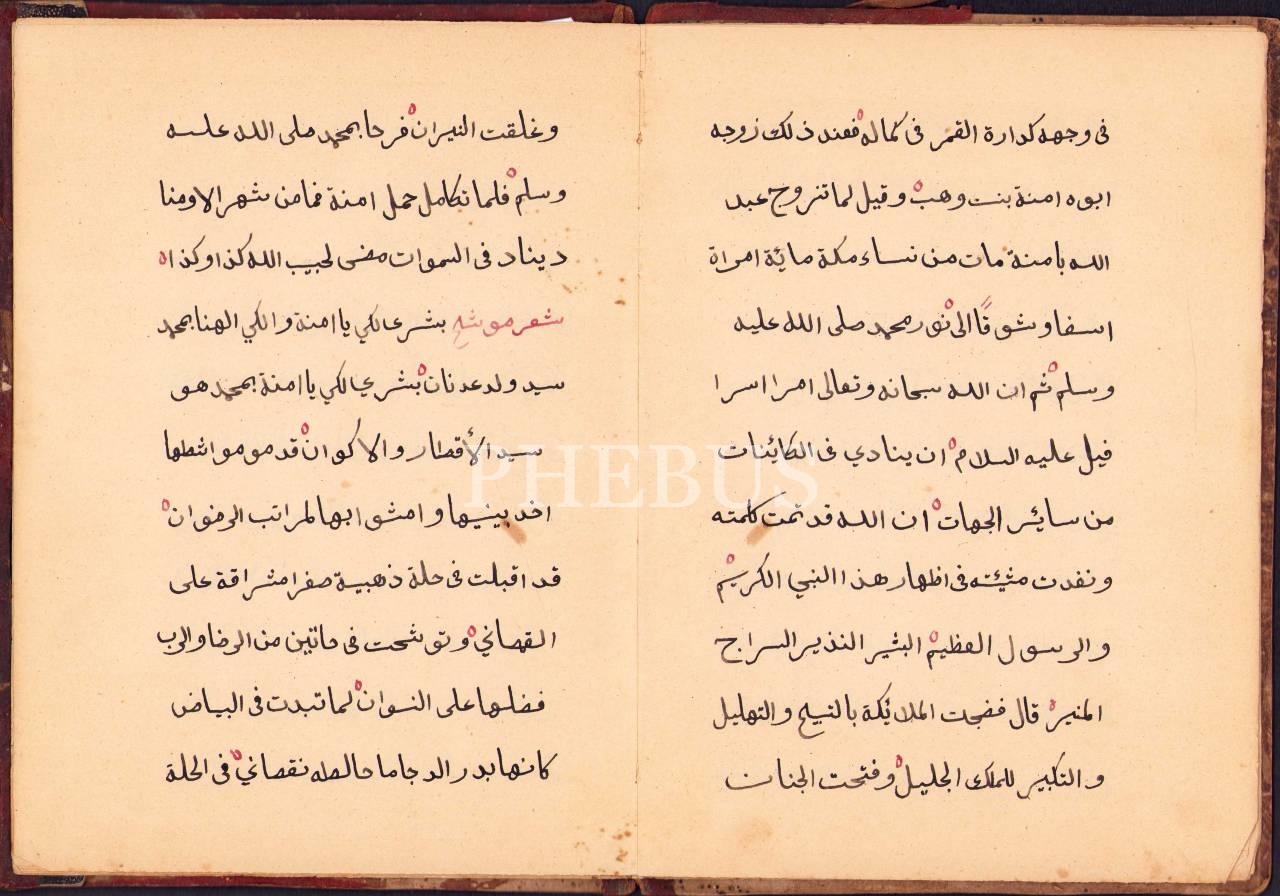 فى وجهه كدارة القمر فى كماله فعند ذلك زوجه
ابوه امنة بنت وهب وقيل لما تزوج عبد
الله بامنة مات من نساء مكة مائة امراة
اسفا وشوقًا الى نور محمد صلى الله عليه
وسلم ثم ان الله سبحانه وتعالى امر اسرا
فيل عليه السلام ان ينادي فى الكائنات
من سائر الجهات ان الله قد تمت كلمته
ونفدت مشئته فى اظهار هذا النبي الكريم
والرسول العظيم البشير النذير السراج
المنير قال فضجت الملائكة بالتسبيح والتهليل
والتكبير للملك الجليل وفتحت الجنان
وغلقت النيران فرحا بمحمد صلى الله عليه
وسلم فلما تكامل حمل امنة فما من شهر الا ومنا
د يناد فى السموات مضى لحبيب الله كذا وكذا
شعر موشح بشرى لكي يا امنة والكي الهنا بمحمد
سيد ولد عدنان بشرى لكي يا امنة بمحمد هو
سيد الأقطار والاكوان قدمو مواشطها
اخد بيديها وامشو ابها لمراتب الرضوان
قد اقبلت فى حلة ذهبية صفرا مشراقة على
القمصاني وتوشحت فى حاتين من الرضا والرب
فضلها على النسوان لما تبدت فى البياض
كانها بدر الدجا ما حالطه نقصاني فى الحلة
PHEBUS